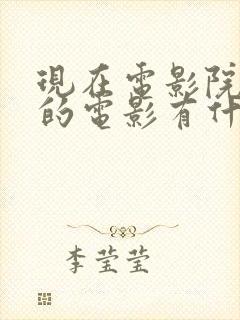 現在電影院
的電影有什
李莹莹